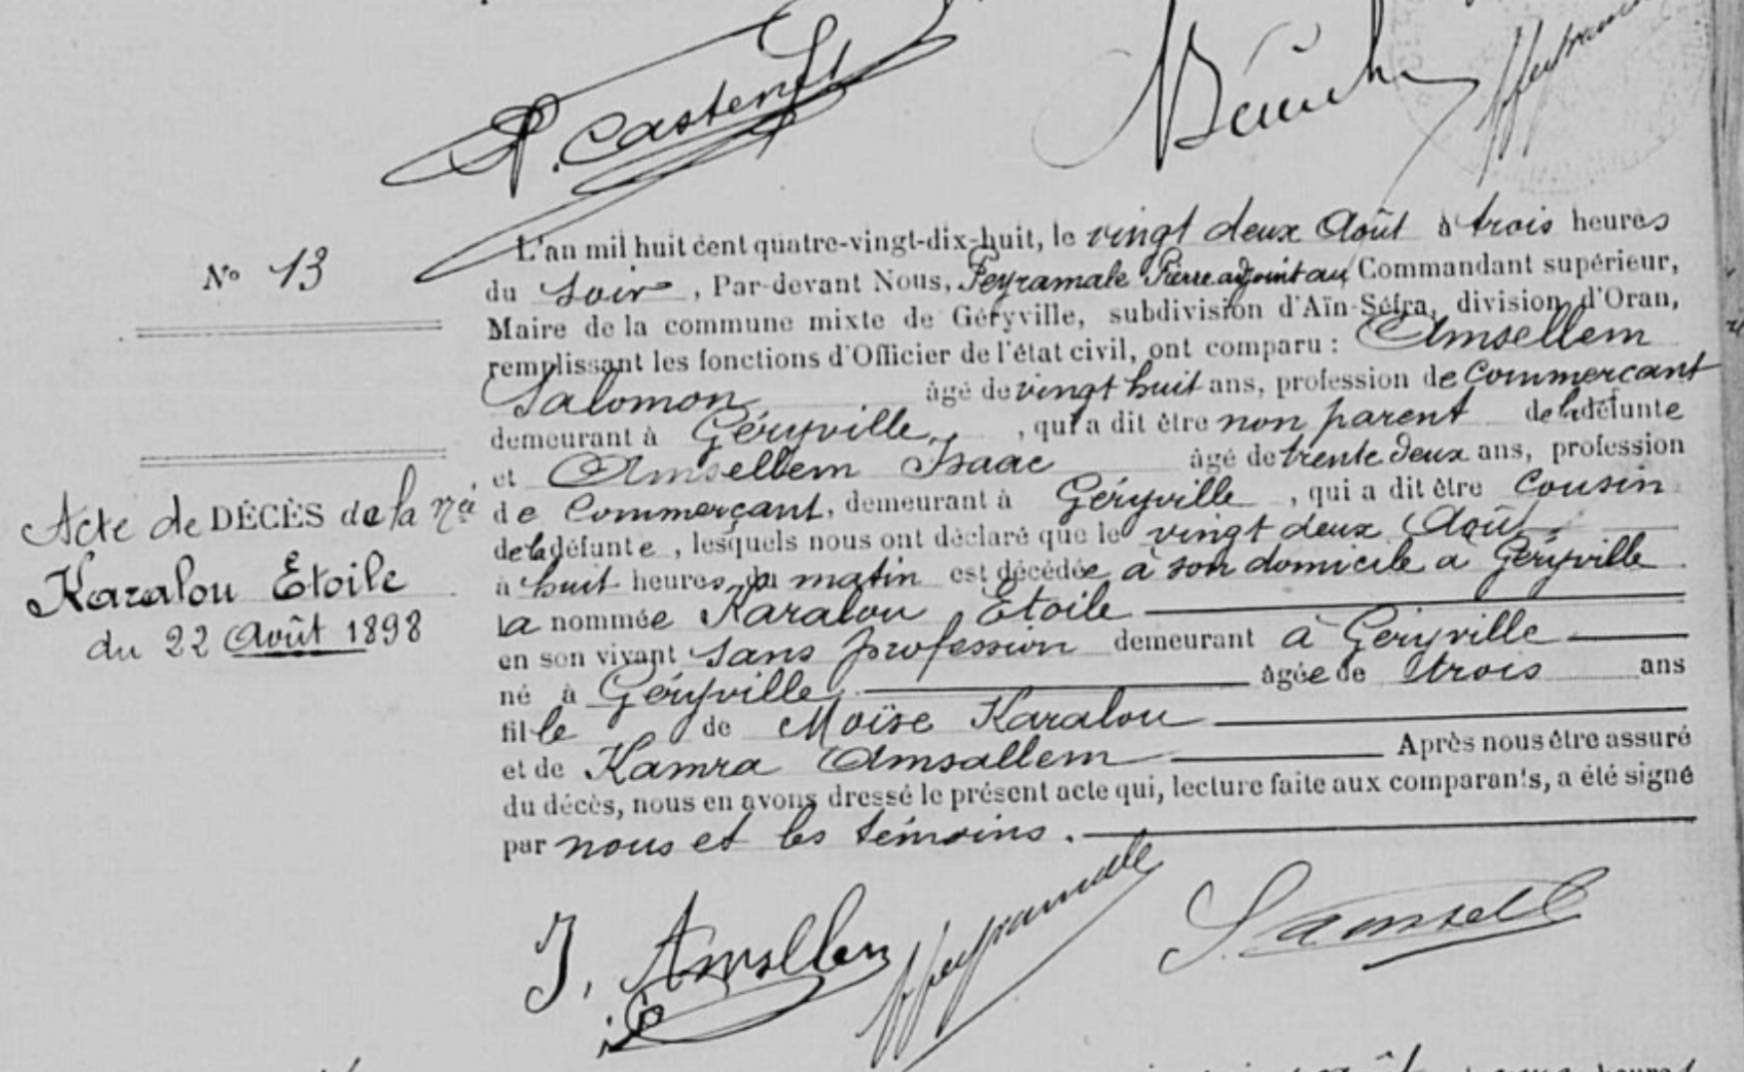 P. Casteng
N° 13
L'an mil huit cent quatre-vingt-dix-huit, le vingt deux Août à trois heures
du soir, Par-devant Nous, Peyramale Pierre adjoint au Commandant supérieur,
Maire de la commune mixte de Géryville, subdivision d'Aïn-Séfra, division d'Oran,
remplissant les fonctions d'Officier de l'état civil, ont comparu : Amsellem
Salomon âgé de vingt huit ans, profession de Commerçant
demeurant à Géryville, qui a dit être non parent de la défunte
et Amsellem Isaac âgé de trente deux ans, profession
de Commerçant, demeurant à Géryville, qui a dit être Cousin
de la défunte, lesquels nous ont déclaré que le vingt deux Août
à huit heures du matin est décédée à son domicile à Géryville
la nommée Karalou Etoile
en son vivant sans profession demeurant à Géryville
né à Géryville âgée de trois ans
fille de Moïse Karalou
et de Kamra Amsallem Après nous être assuré
du décès, nous en avons dressé le présent acte qui, lecture faite aux comparants, a été signé
par nous et les témoins.
Acte de DÉCÈS de la née
Karalou Etoile
du 22 Août 1898
J. Amsellem
Peyramale
S. amsell